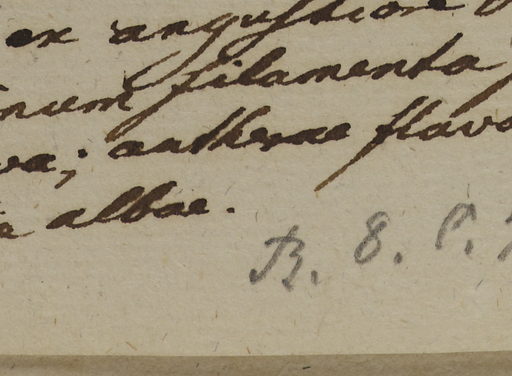 ex angustiore
filamenta
; antherae flava
albae.
B. 8. p.